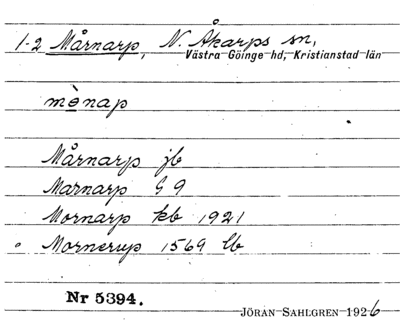 1-2 Mårnarp, N. Åkarps sn,
Västra Göinge hd, Kristianstad län
mènap
Mårnarp jb
Marnarp G 9
Mornarp kb 1921
Mornerup 1569 lb
Nr 5394.
JÖRAN SAHLGREN 1926